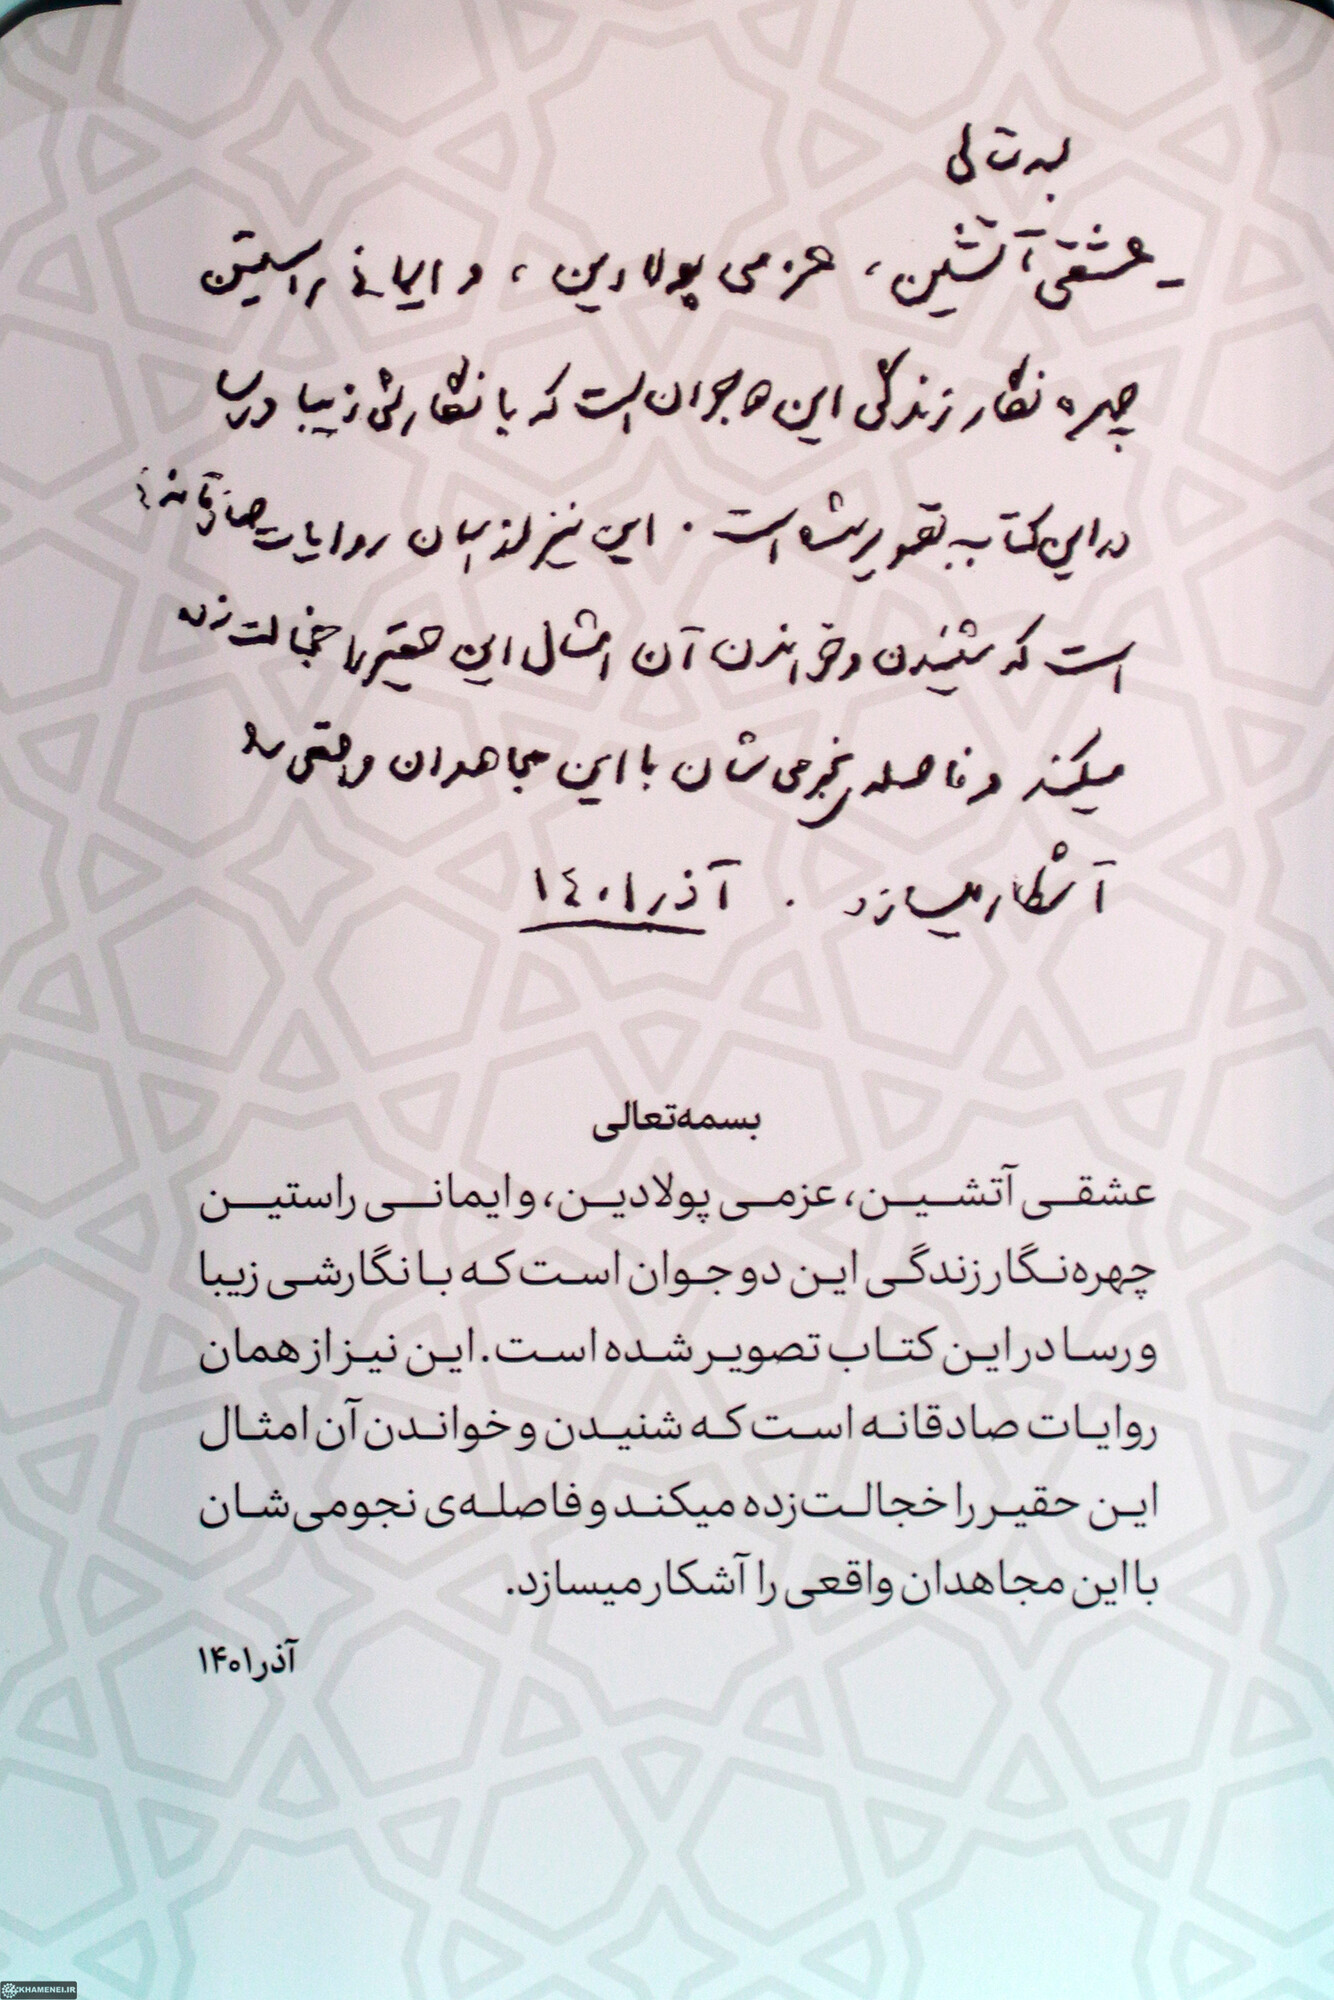 بسمه تعالی
عشقی آتشین، عزمی پولادین، و ایمانی راستین
چهره نگار زندگی این دو جوان است که با نگارشی زیبا و رسا
در این کتاب به تصویر شده است. این نیز از همان روایات صادقانه‌ئی
است که شنیدن و خواندن آن امثال این حقیر را خجالت زده
میکند و فاصله‌ی نجومی شان با این مجاهدان واقعی را
آشکار میسازد. آذر ۱۴۰۱
بسمه‌تعالی
عشقی آتشین، عزمی پولادین، و ایمانی راستین
چهره‌نگار زندگی این دو جوان است که با نگارشی زیبا
و رسا در این کتاب تصویر شده است. این نیز از همان
روایات صادقانه است که شنیدن و خواندن آن امثال
این حقیر را خجالت‌زده میکند و فاصله‌ی نجومی‌شان
با این مجاهدان واقعی را آشکار میسازد.
آذر ۱۴۰۱
KHAMENEI.IR